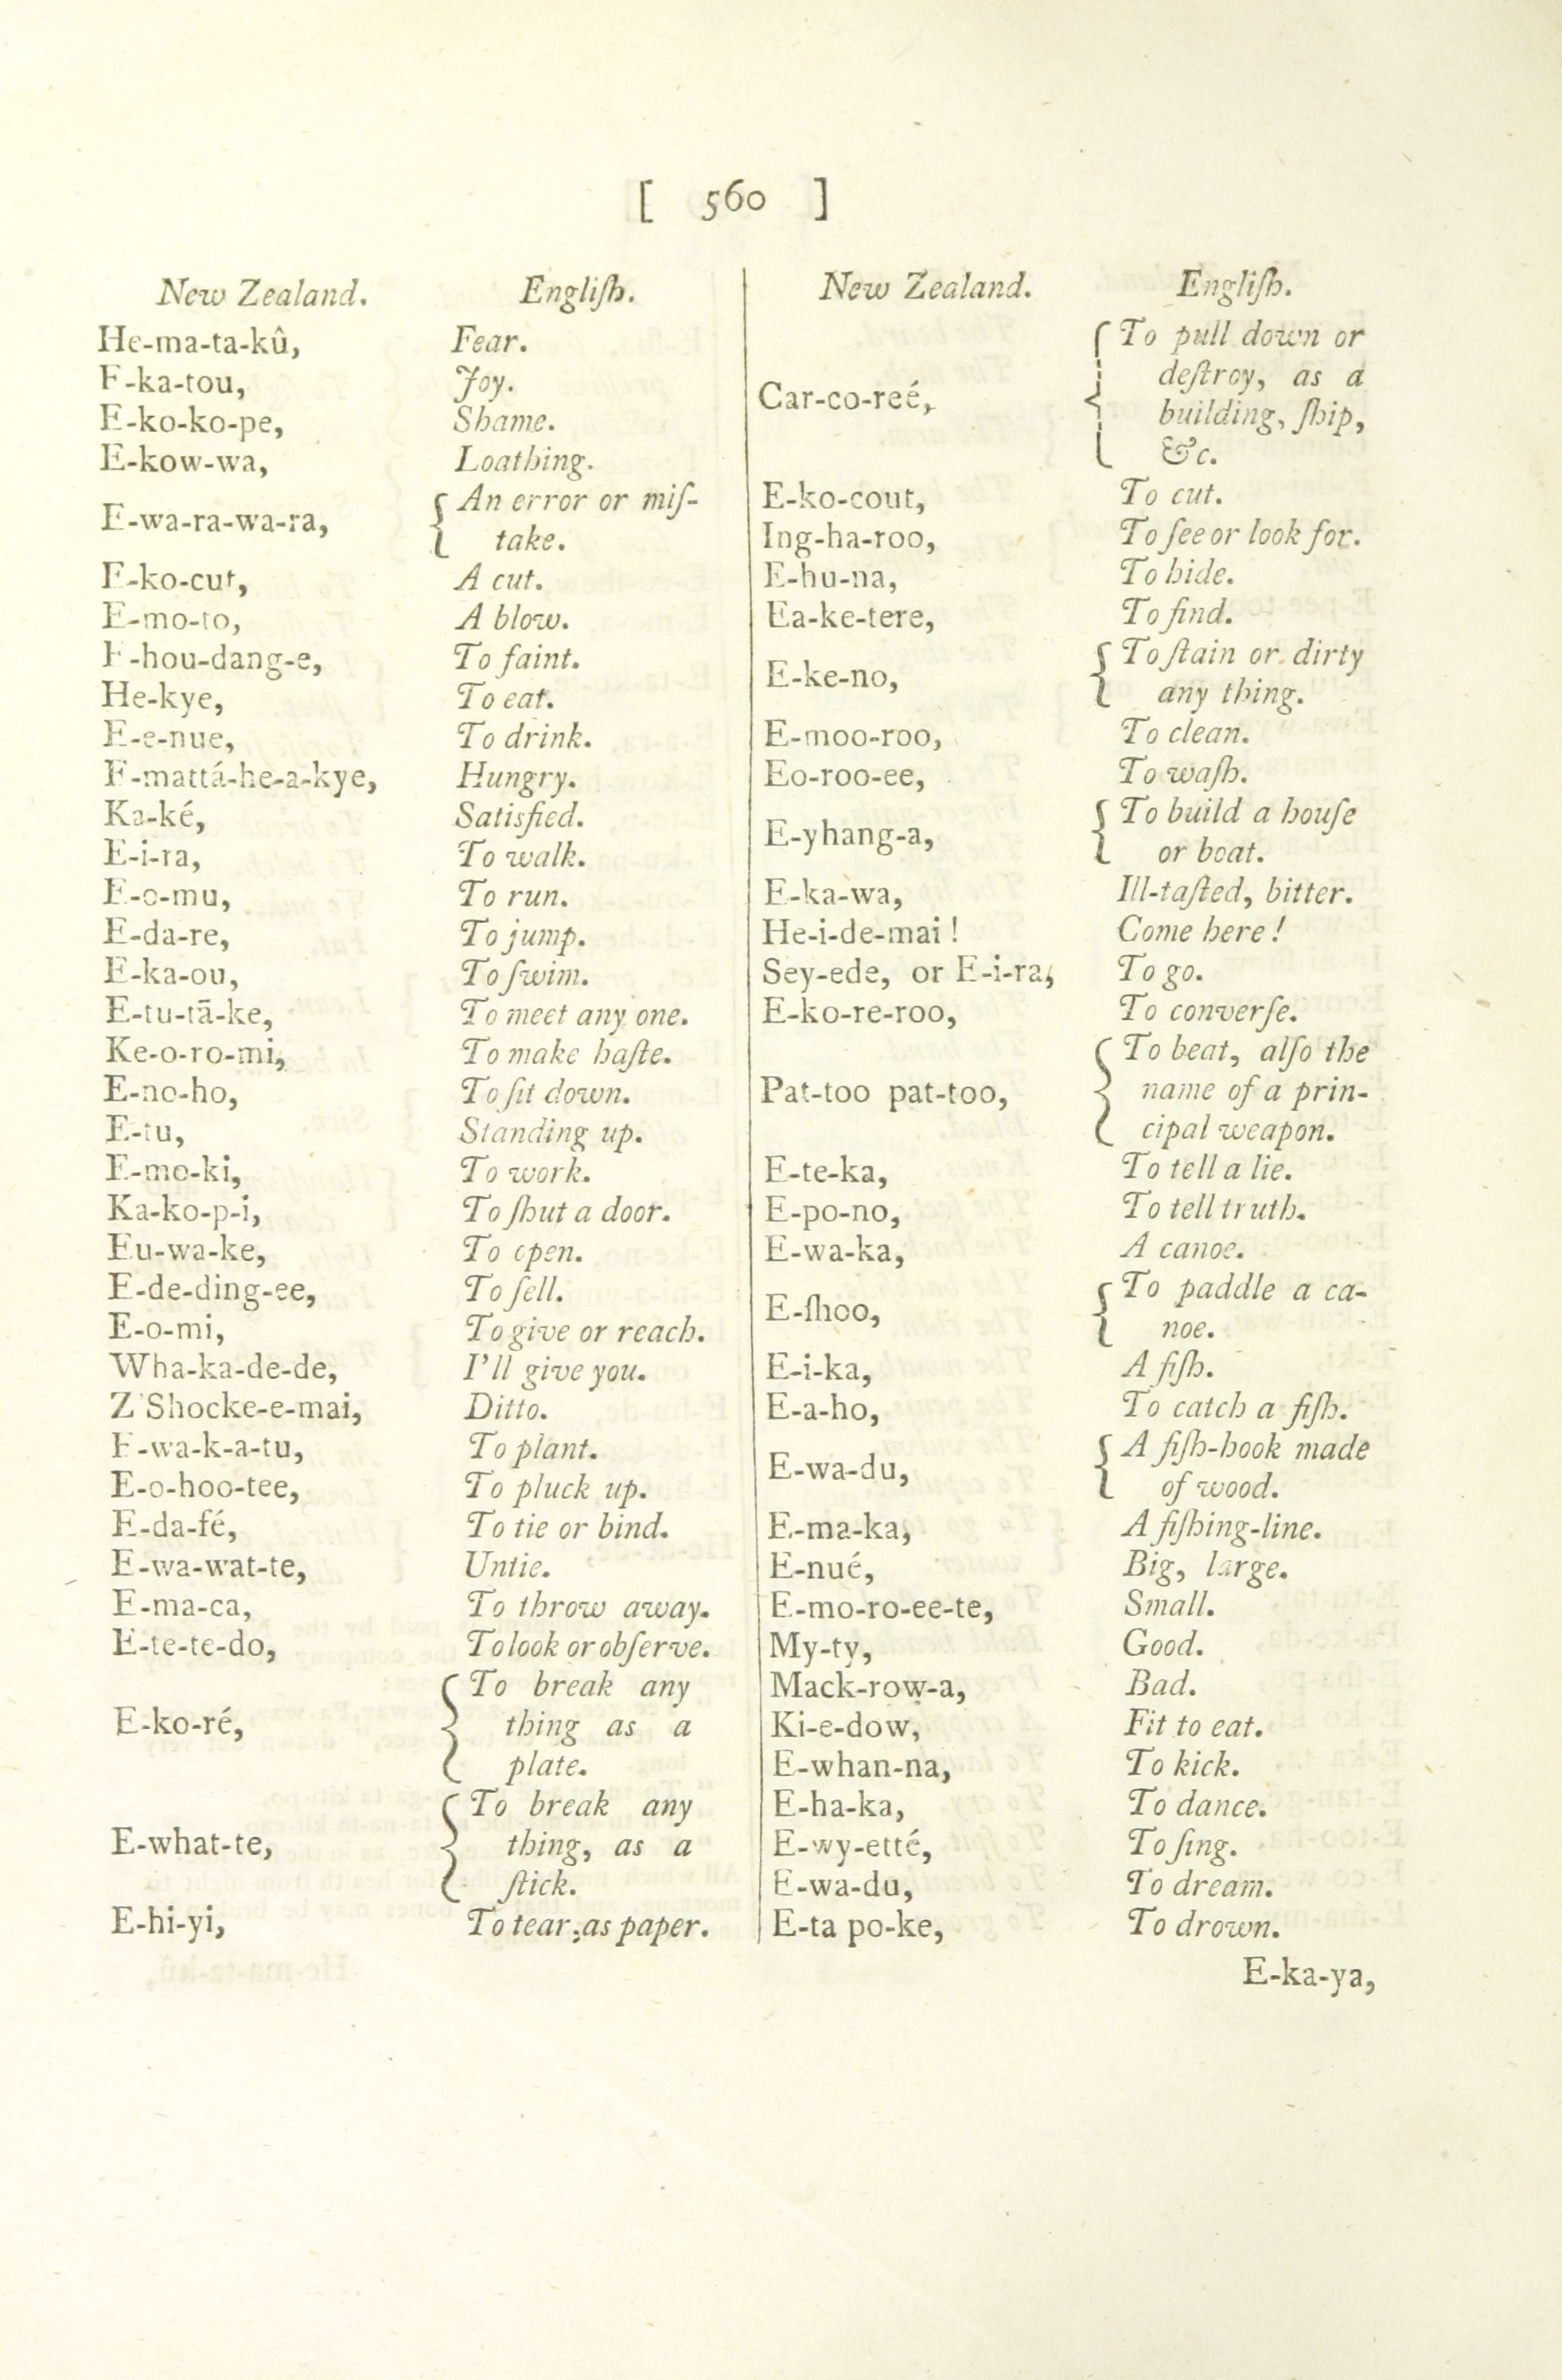 [ 560 ]
New Zealand. Engliſh.
He-ma-ta-kû, Fear.
E-ka-tou, Joy.
E-ko-ko-pe, Shame.
E-kow-wa, Loathing.
E-wa-ra-wa-ra, { An error or miſ-
take.
E-ko-cut, A cut.
E-mo-to, A blow.
E-hou-dang-e, To faint.
He-kye, To eat.
E-e-nue, To drink.
E-mattá-he-a-kye, Hungry.
Ka-ké, Satisfied.
E-i-ra, To walk.
E-o-mu, To run.
E-da-re, To jump.
E-ka-ou, To ſwim.
E-tu-tā-ke, To meet any one.
Ke-o-ro-mi, To make haſte.
E-no-ho, To ſit down.
E-tu, Standing up.
E-mo-ki, To work.
Ka-ko-p-i, To ſhut a door.
Eu-wa-ke, To open.
E-de-ding-ee, To ſell.
E-o-mi, To give or reach.
Wha-ka-de-de, I'll give you.
Z'Shocke-e-mai, Ditto.
E-wa-k-a-tu, To plant.
E-o-hoo-tee, To pluck up.
E-da-fé, To tie or bind.
E-wa-wat-te, Untie.
E-ma-ca, To throw away.
E-te-te-do, To look or obſerve.
E-ko-ré, { To break any
thing as a
plate.
E-what-te, { To break any
thing, as a
ſtick.
E-hi-yi, To tear, as paper.
New Zealand. Engliſh.
Car-co-reé, { To pull down or
deſtroy, as a
building, ſhip,
&c.
E-ko-cout, To cut.
Ing-ha-roo, To ſee or look for.
E-hu-na, To hide.
Ea-ke-tere, To find.
E-ke-no, { To ſtain or dirty
any thing.
E-moo-roo, To clean.
Eo-roo-ee, To waſh.
E-yhang-a, { To build a houſe
or boat.
E-ka-wa, Ill-taſted, bitter.
He-i-de-mai! Come here!
Sey-ede, or E-i-ra, To go.
E-ko-re-roo, To converſe.
Pat-too pat-too, { To beat, alſo the
name of a prin-
cipal weapon.
E-te-ka, To tell a lie.
E-po-no, To tell truth.
E-wa-ka, A canoe.
E-ſhoo, { To paddle a ca-
noe.
E-i-ka, A fiſh.
E-a-ho, To catch a fiſh.
E-wa-du, { A fiſh-hook made
of wood.
E-ma-ka, A fiſhing-line.
E-nué, Big, large.
E-mo-ro-ee-te, Small.
My-ty, Good.
Mack-row-a, Bad.
Ki-e-dow, Fit to eat.
E-whan-na, To kick.
E-ha-ka, To dance.
E-wy-etté, To ſing.
E-wa-du, To dream.
E-ta po-ke, To drown.
E-ka-ya,